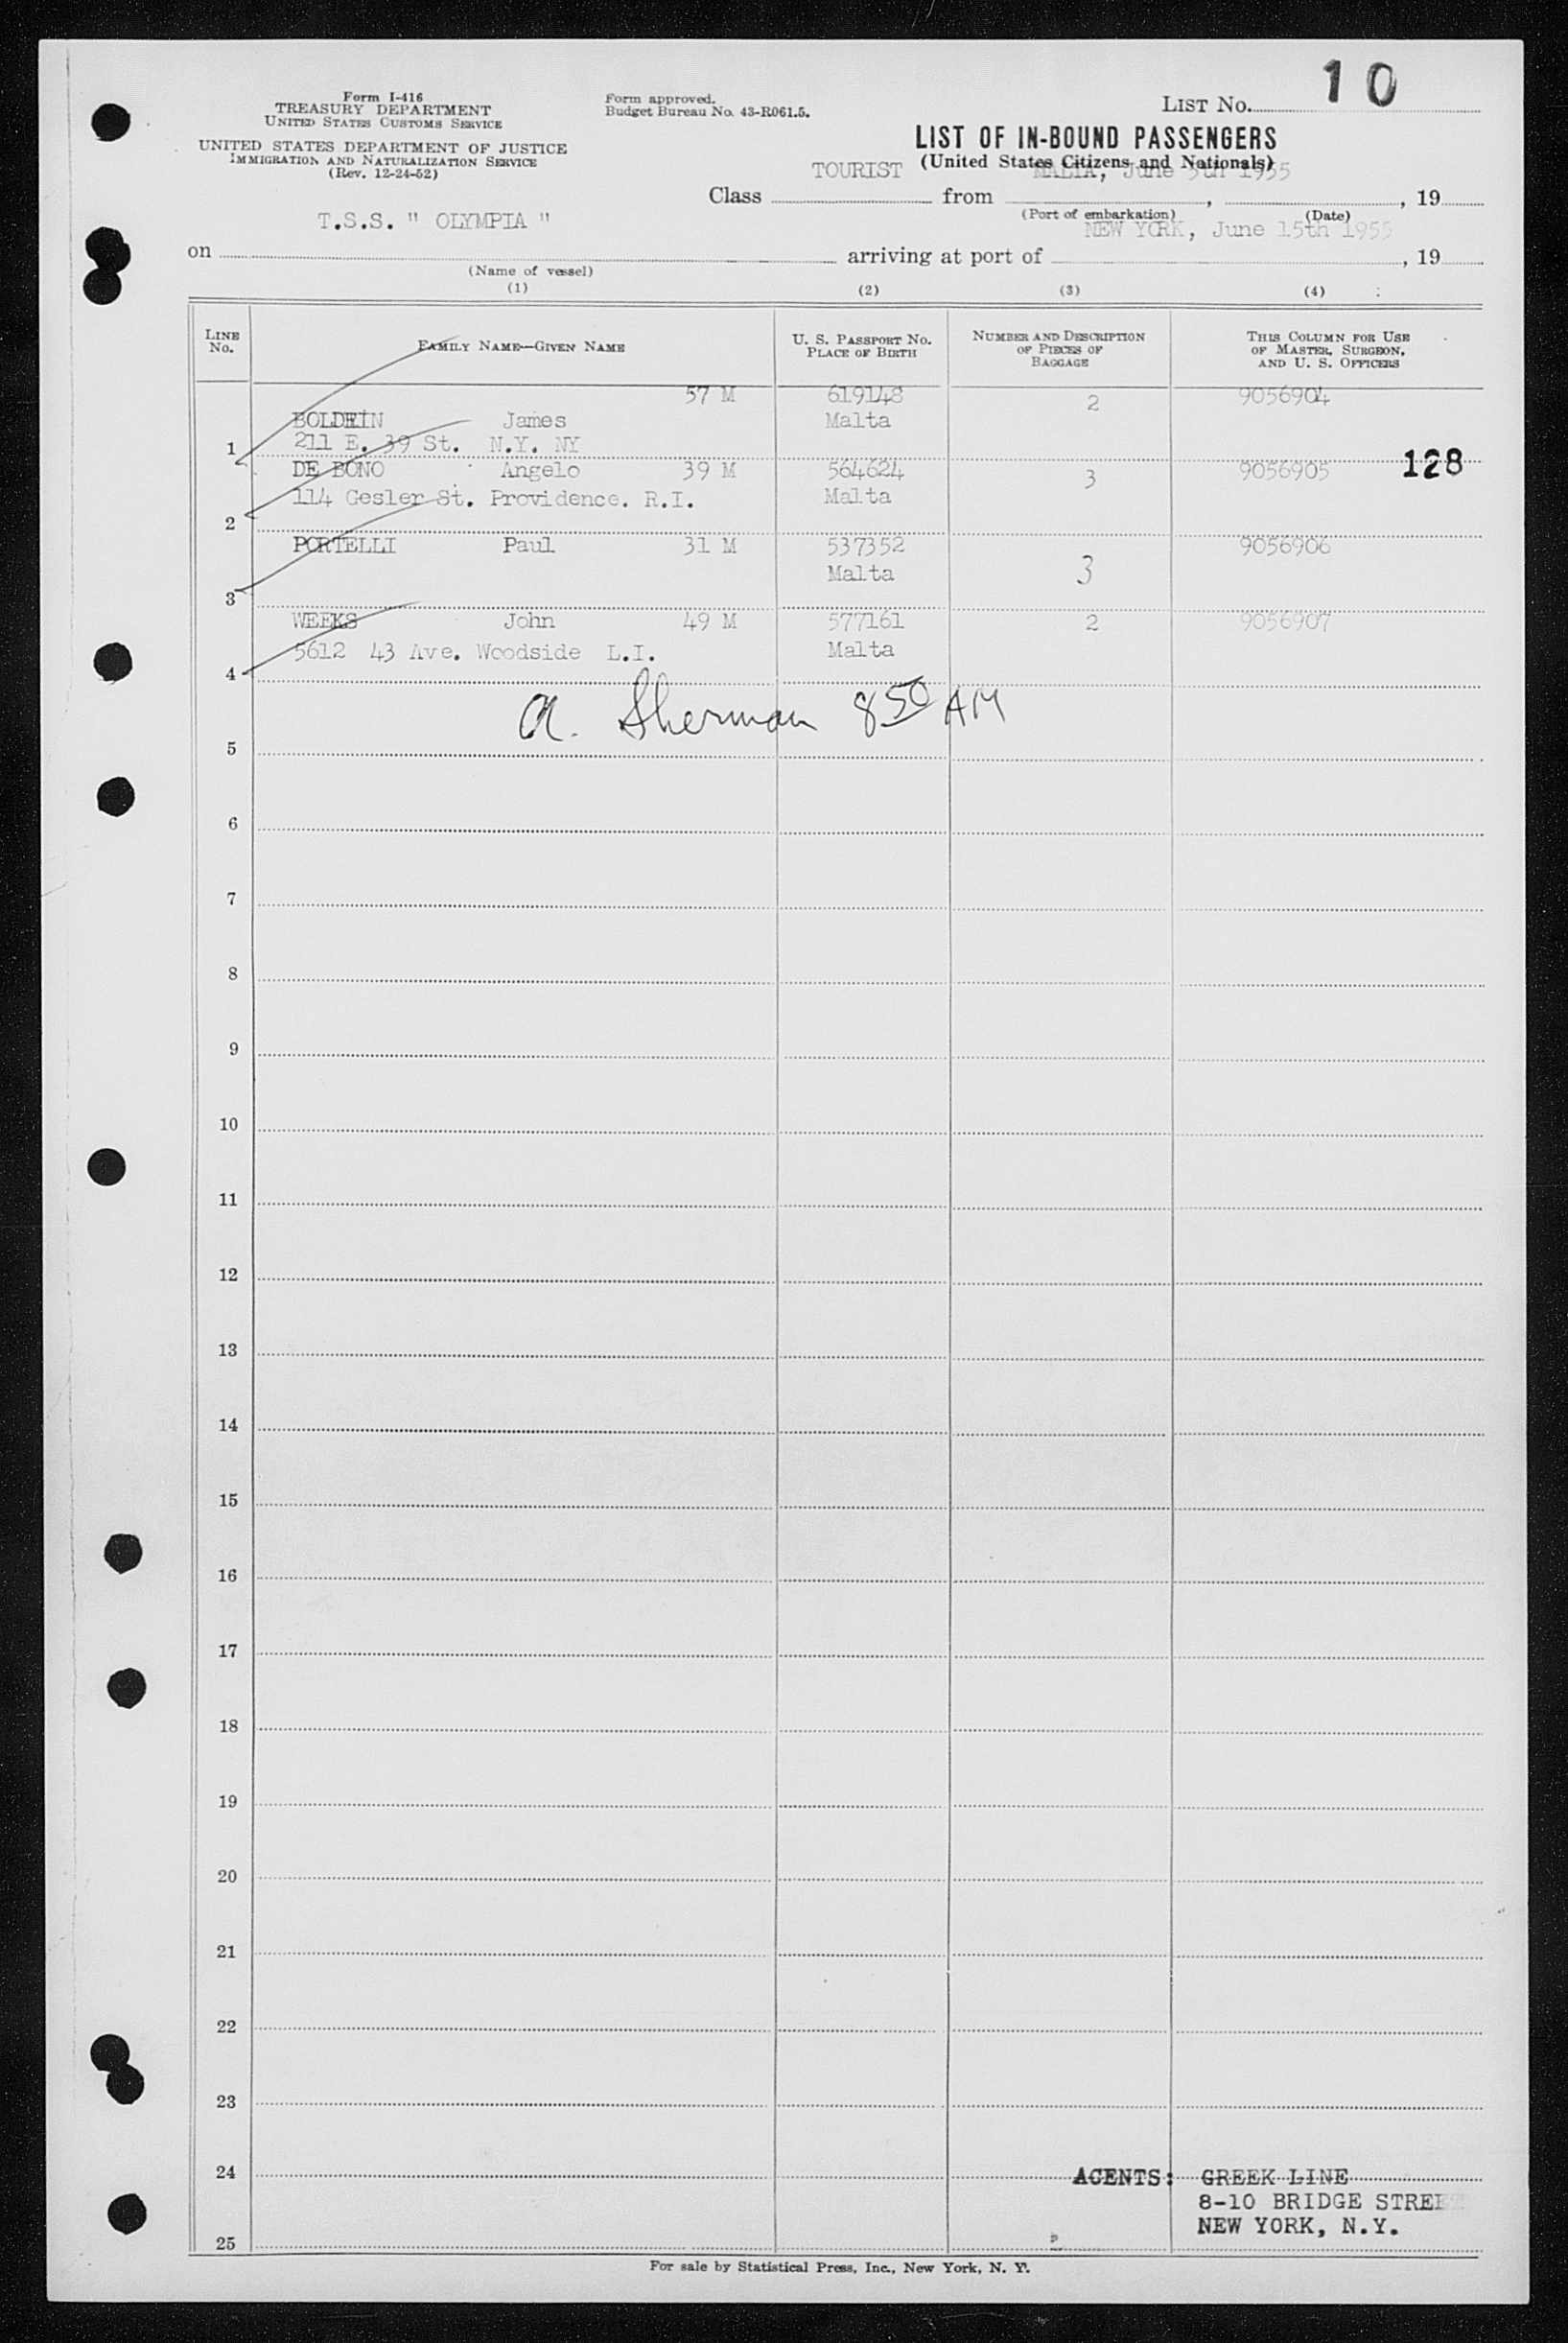 10
Form I-416
TREASURY DEPARTMENT
UNITED STATES CUSTOMS SERVICE
UNITED STATES DEPARTMENT OF JUSTICE
IMMIGRATION AND NATURALIZATION SERVICE
(Rev. 12-24-52)
Form approved.
Budget Bureau No. 43-R061.5.
LIST No.
LIST OF IN-BOUND PASSENGERS
(United States Citizens and Nationals)
TOURIST MALTA, June 5th 1955
Class from , , 19
(Port of embarkation) (Date)
T.S.S. " OLYMPIA " NEW YORK, June 15th 1955
on arriving at port of , 19
(Name of vessel)
(1) (2) (3) (4)
LINE No. FAMILY NAME—GIVEN NAME U. S. PASSPORT No. PLACE OF BIRTH NUMBER AND DESCRIPTION OF PIECES OF BAGGAGE THIS COLUMN FOR USE OF MASTER, SURGEON, AND U. S. OFFICERS
57 M 619148 2 9056904
BOLDEIN James Malta
1 211 E. 39 St. N.Y. NY
DE BONO Angelo 39 M 564624 3 9056905 128
114 Gesler St. Providence. R.I. Malta
2
PORTELLI Paul 31 M 537352 9056906
Malta 3
3
WEEKS John 49 M 577161 2 9056907
5612 43 Ave. Woodside L.I. Malta
4
A. Sherman 8 50 AM
5
6
7
8
9
10
11
12
13
14
15
16
17
18
19
20
21
22
23
24 AGENTS: GREEK LINE
8-10 BRIDGE STREET
NEW YORK, N.Y.
25
For sale by Statistical Press, Inc., New York, N. Y.